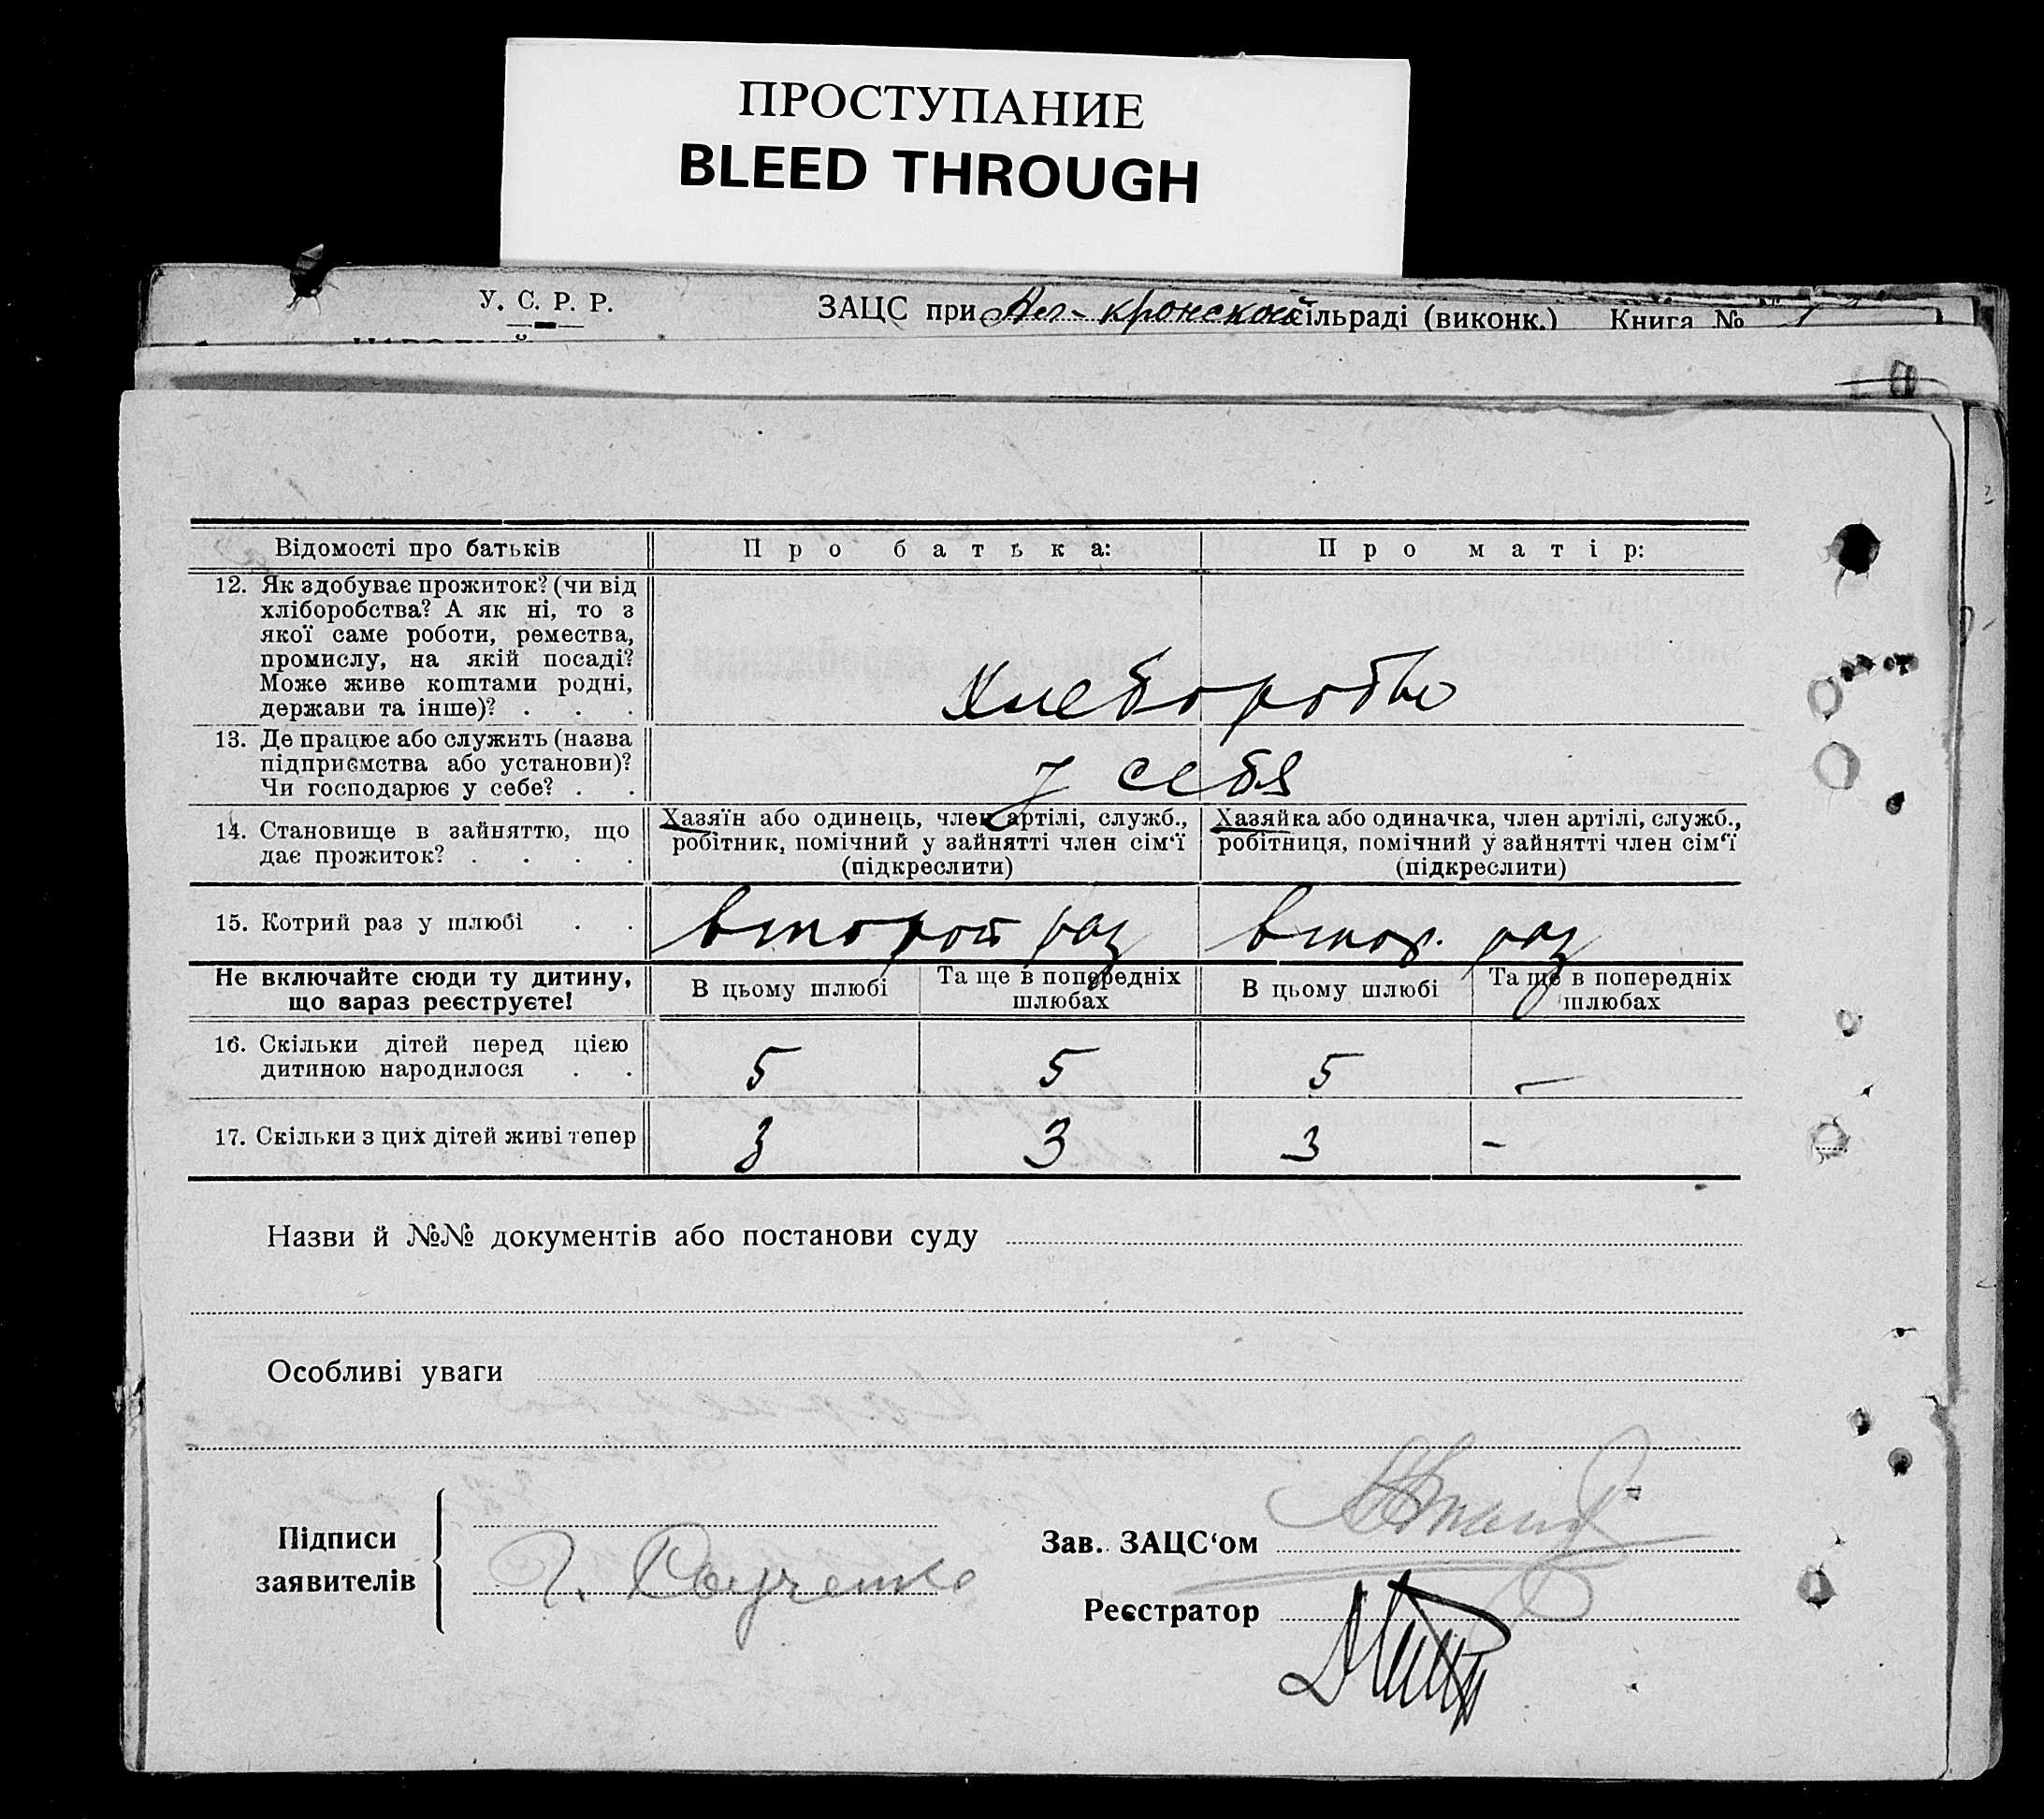 ПРОСТУПАНИЕ
BLEED THROUGH
У. С. Р. Р.
ЗАЦС при кронской сільраді (виконк.) Книга № 1
Відомості про батьків
Про батька:
Про матір:
12. Як здобуває прожиток? (чи від
хліборобства? А як ні, то з
якої саме роботи, ремества,
промислу, на якій посаді?
Може живе коштами родні,
держави та інше)? . . .
Хлеборобы
13. Де працює або служить (назва
підприємства або установи)?
Чи господарює у себе? . .
у себя
14. Становище в зайняттю, що
дає прожиток? . . . .
Хазяїн або одинець, член артілі, служб.,
робітник, помічний у зайнятті член сім‘ї
(підкреслити)
Хазяйка або одиначка, член артілі, служб.,
робітниця, помічний у зайнятті член сім‘ї
(підкреслити)
15. Котрий раз у шлюбі . .
второй раз
втор. раз
Не включайте сюди ту дитину,
що зараз реєструєте!
В цьому шлюбі
Та ще в попередніх
шлюбах
В цьому шлюбі
Та ще в попередніх
шлюбах
16. Скільки дітей перед цією
дитиною народилося . .
5
5
5
—
17. Скільки з цих дітей живі тепер
3
3
3
–
Назви й №№ документів або постанови суду
Особливі уваги
Підписи
заявителів
Зав. ЗАЦС‘ом
Реєстратор